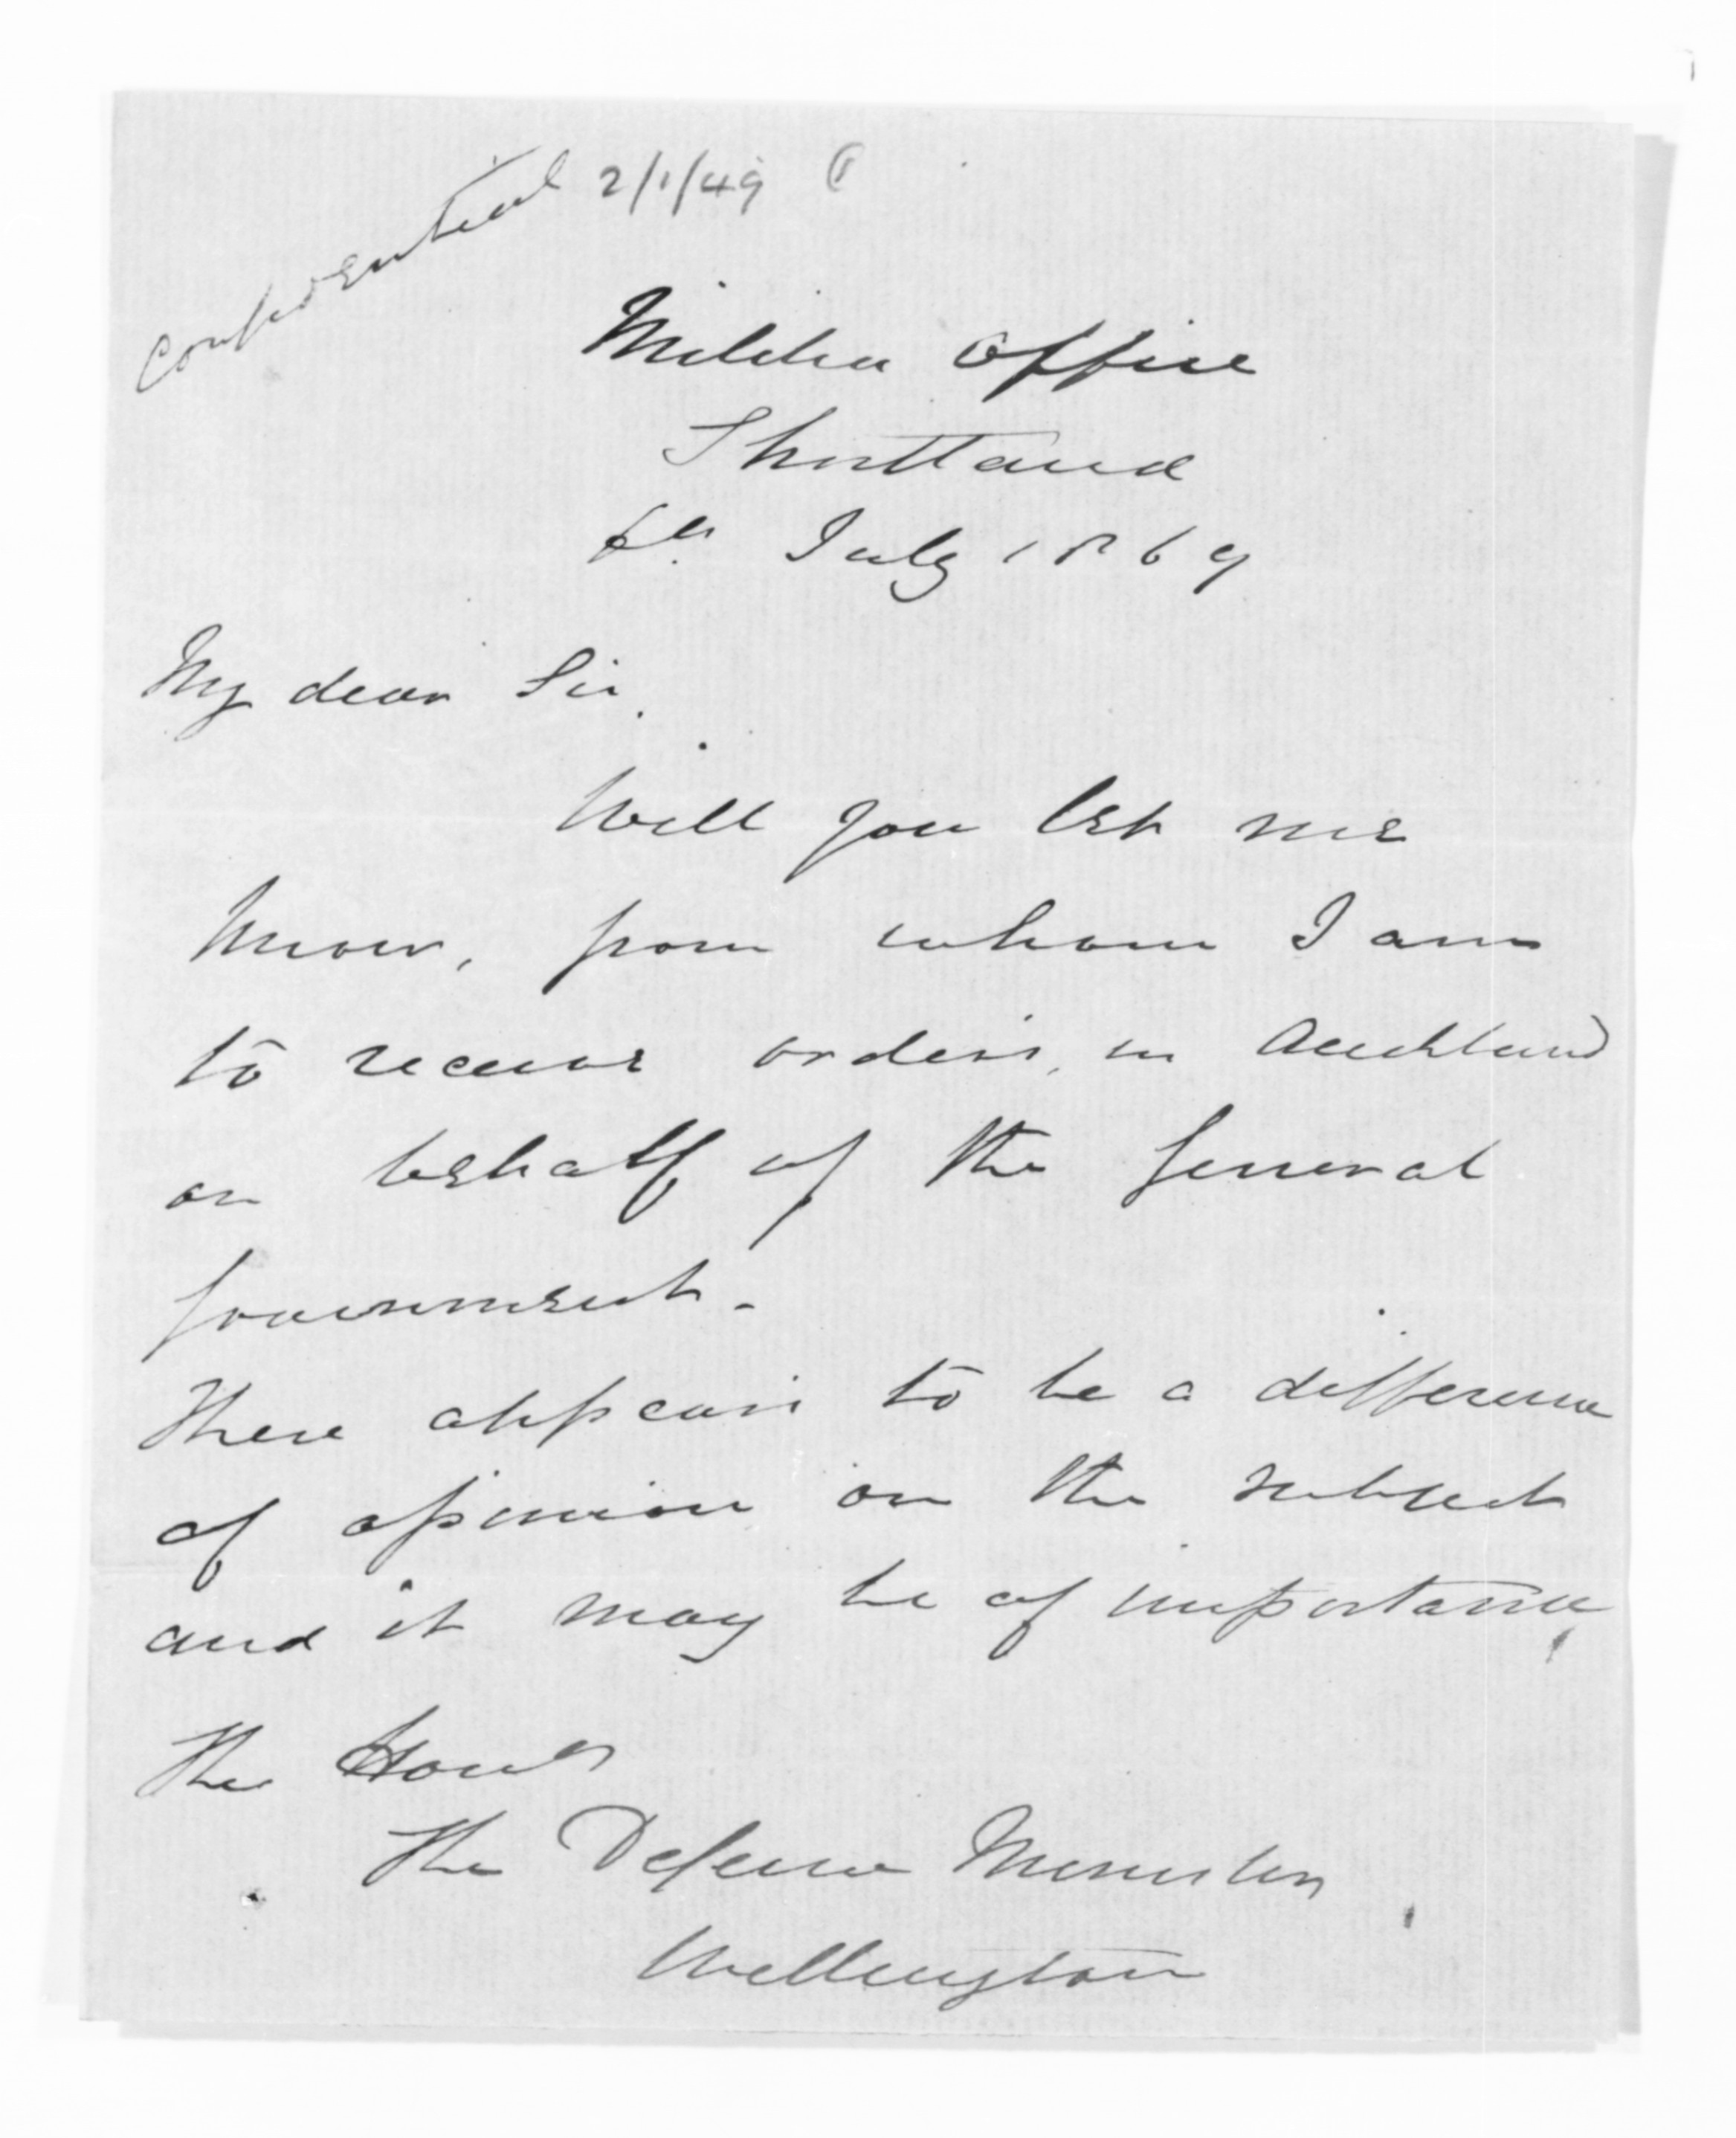 Confidential 2/1/49
Militia Office
Shortland
6th July 1869
My dear Sir,
Will you let me
know, from whom I am
to receive orders, in Auckland
on behalf of the General
Government.
There appears to be a difference
of opinion on the subject
and it may be of importance,
The Honble
The Defence Minister
Wellington